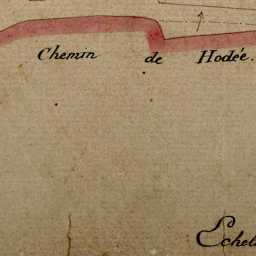 Chemin de Hodée.
Echel